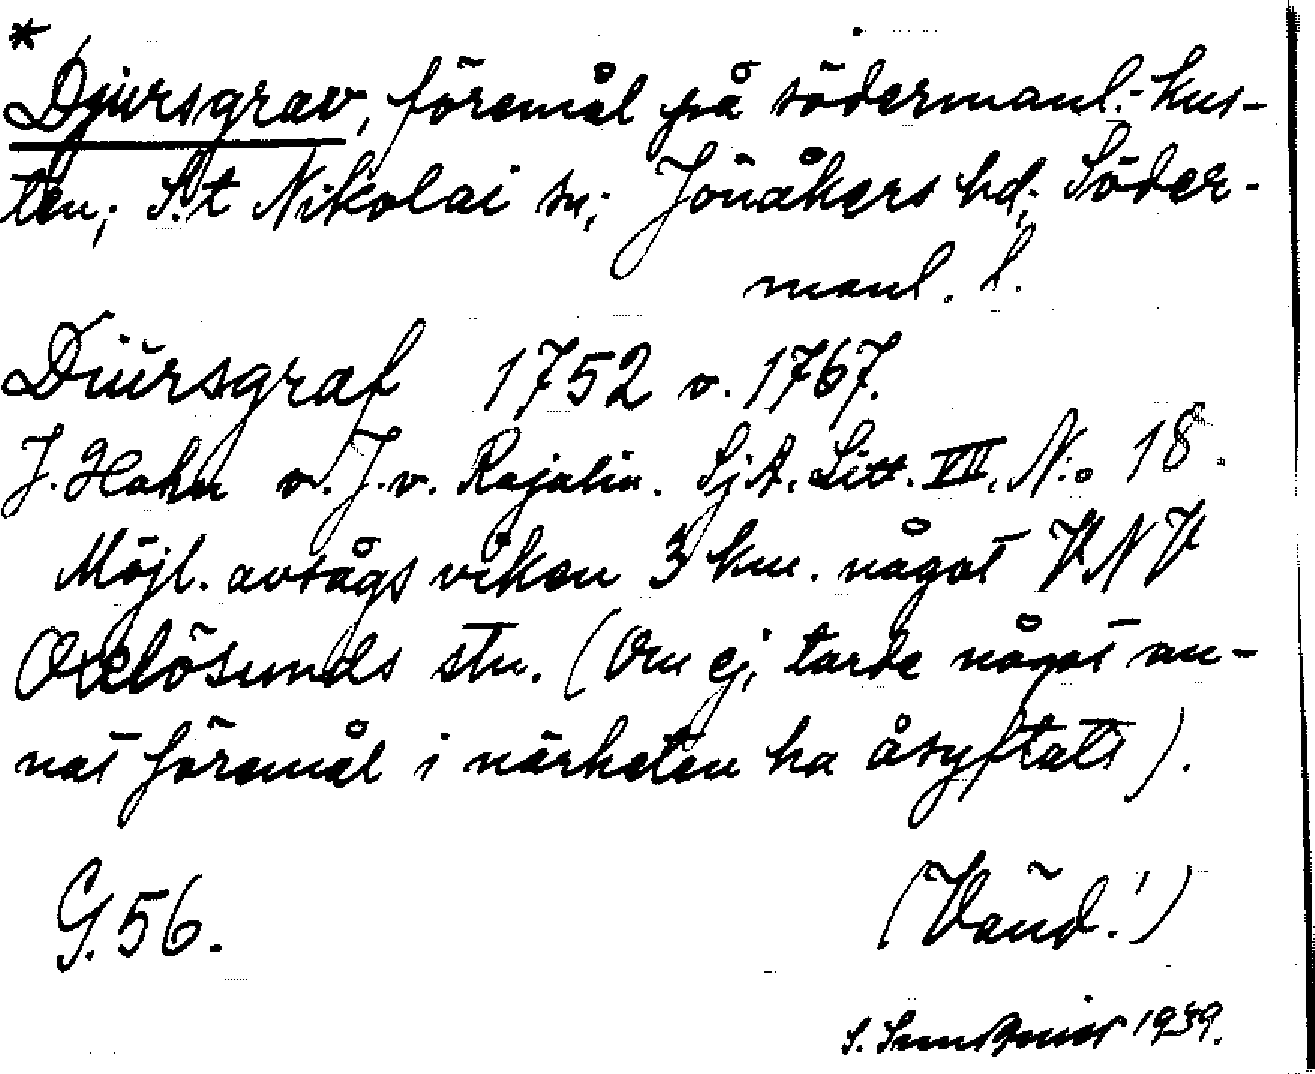 *
Djursgrav, föremål på södermanl. kus-
ten; S:t Nikolai sn; Jönåkers hd; Söder-
manl. l.
Diursgraf 1752 o. 1767.
J. Hahn o. J. v. Rajalin. Sj.A. Litt. VII. N:o 18.
Möjl. avsågs viken 3 km. något VNV
Oxelösunds stn. (Om ej, torde något an-
nat föremål i närheten ha åsyftats).
G. 56. (Vänd!)
S. 1939.